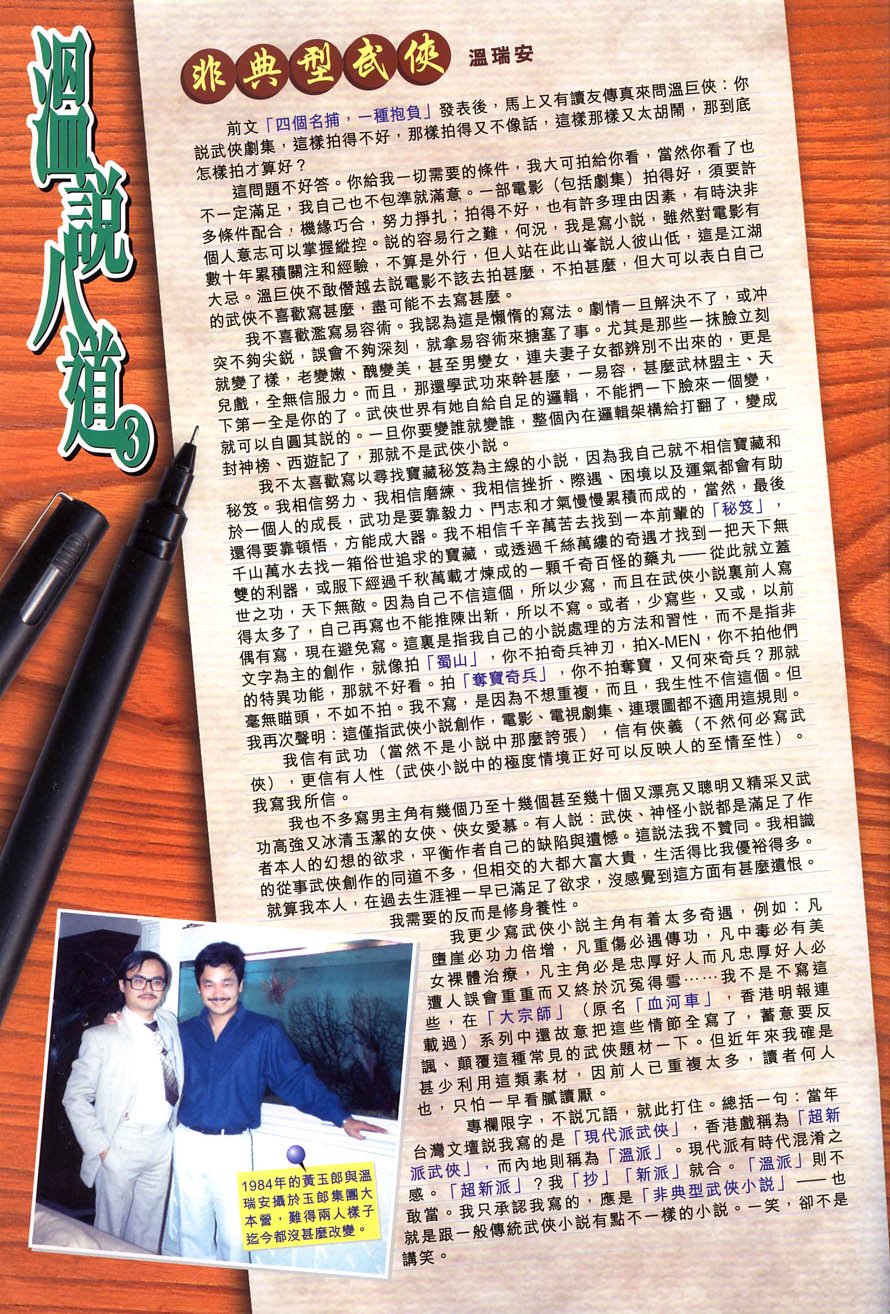 溫說八道
3
非典型武俠
溫瑞安
前文「四個名捕，一種抱負」發表後，馬上又有讀友傳真來問溫巨俠：你
説武俠劇集，這樣拍得不好，那樣拍得又不像話，這樣那樣又太胡鬧，那到底
怎樣拍才算好？
這問題不好答。你給我一切需要的條件，我大可拍給你看，當然你看了也
不一定滿足，我自己也不包準就滿意。一部電影（包括劇集）拍得好，須要許
多條件配合，機緣巧合，努力爭扎；拍得不好，也有許多理由因素，有時決非
個人意志可以掌握縱控。説的容易行之難，何況，我是寫小説，雖然對電影有
數十年累積關注和經驗，不算是外行，但人站在此山峯説人彼山低，這是江湖
大忌。溫巨俠不敢僭越去説電影不該去拍甚麼，不拍甚麼，但大可以表白自己
的武俠不喜歡寫甚麼，盡可能不去寫甚麼。
我不喜歡濫寫易容術。我認為這是懶惰的寫法。劇情一旦解決不了，或冲
突不夠尖鋭，誤會不夠深刻，就拿易容術來搪塞了事。尤其是那些一抹臉立刻
就變了樣，老變嫩、醜變美，甚至男變女，連夫妻子女都辨別不出來的，更是
兒戲，全無信服力。而且，那還學武功來幹甚麼，一易容，甚麼武林盟主、天
下第一全是你的了。武俠世界有她自給自足的邏輯，不能捫一下臉來一個變，
就可以自圓其説的。一旦你要變誰就變誰，整個內在邏輯架構給打翻了，變成
封神榜、西遊記了，那就不是武俠小説。
我不太喜歡寫以尋找寶藏秘笈為主線的小説，因為我自己就不相信寶藏和
秘笈。我相信努力、我相信磨練、我相信挫折、際遇、困境以及運氣都會有助
於一個人的成長，武功是要靠毅力、鬥志和才氣慢慢累積而成的，當然，最後
還得要靠頓悟，方能成大器。我不相信千辛萬苦去找到一本前輩的「秘笈」，
千山萬水去找一箱俗世追求的寶藏，或透過千絲萬縷的奇遇才找到一把天下無
雙的利器，或服下經過千秋萬載才煉成的一顆千奇百怪的藥丸——從此就立蓋
世之功，天下無敵。因為自己不信這個，所以少寫，而且在武俠小説裏前人寫
得太多了，自己再寫也不能推陳出新，所以不寫。或者，少寫些，又或，以前
偶有寫，現在避免寫。這裏是指我自己的小説處理的方法和習性，而不是指非
文字為主的創作，就像拍「蜀山」，你不拍奇兵神刃，拍X-MEN，你不拍他們
的特異功能，那就不好看。拍「奪寶奇兵」，你不拍奪寶，又何來奇兵？那就
毫無瞄頭，不如不拍。我不寫，是因為不想重複，而且，我生性不信這個。但
我再次聲明：這僅指武俠小説創作，電影、電視劇集、連環圖都不適用這規則。
我信有武功（當然不是小説中那麼誇張），信有俠義（不然何必寫武
俠），更信有人性（武俠小説中的極度情境正好可以反映人的至情至性）。
我寫我所信。
我也不多寫男主角有幾個乃至十幾個甚至幾十個又漂亮又聰明又精采又武
功高強又冰清玉潔的女俠、俠女愛慕。有人説：武俠、神怪小説都是滿足了作
者本人的幻想的欲求，平衡作者自己的缺陷與遺憾。這説法我不贊同。我相識
的從事武俠創作的同道不多，但相交的大都大富大貴，生活得比我優裕得多。
就算我本人，在過去生涯裡一早已滿足了欲求，沒感覺到這方面有甚麼遺恨。
我需要的反而是修身養性。
我更少寫武俠小説主角有着太多奇遇，例如：凡
墮崖必功力倍增，凡重傷必遇傳功，凡中毒必有美
女裸體治療，凡主角必是忠厚好人而凡忠厚好人必
遭人誤會重重而又終於沉冤得雪……我不是不寫這
些，在「大宗師」（原名「血河車」，香港明報連
載過）系列中還故意把這些情節全寫了，蓄意要反
諷、顛覆這種常見的武俠題材一下。但近年來我確是
甚少利用這類素材，因前人已重複太多，讀者何人
也，只怕一早看膩讀厭。
專欄限字，不說冗語，就此打住。總括一句：當年
台灣文壇說我寫的是「現代派武俠」，香港戲稱為「超新
派武俠」，而內地則稱為「溫派」。現代派有時代混淆之
感。「超新派」？我「抄」「新派」就合。「溫派」則不
敢當。我只承認我寫的，應是「非典型武俠小説」——也
就是跟一般傳統武俠小説有點不一樣的小説。一笑，卻不是
講笑。
1984年的黃玉郎與溫
瑞安攝於玉郎集團大
本營，難得兩人樣子
迄今都沒甚麼改變。